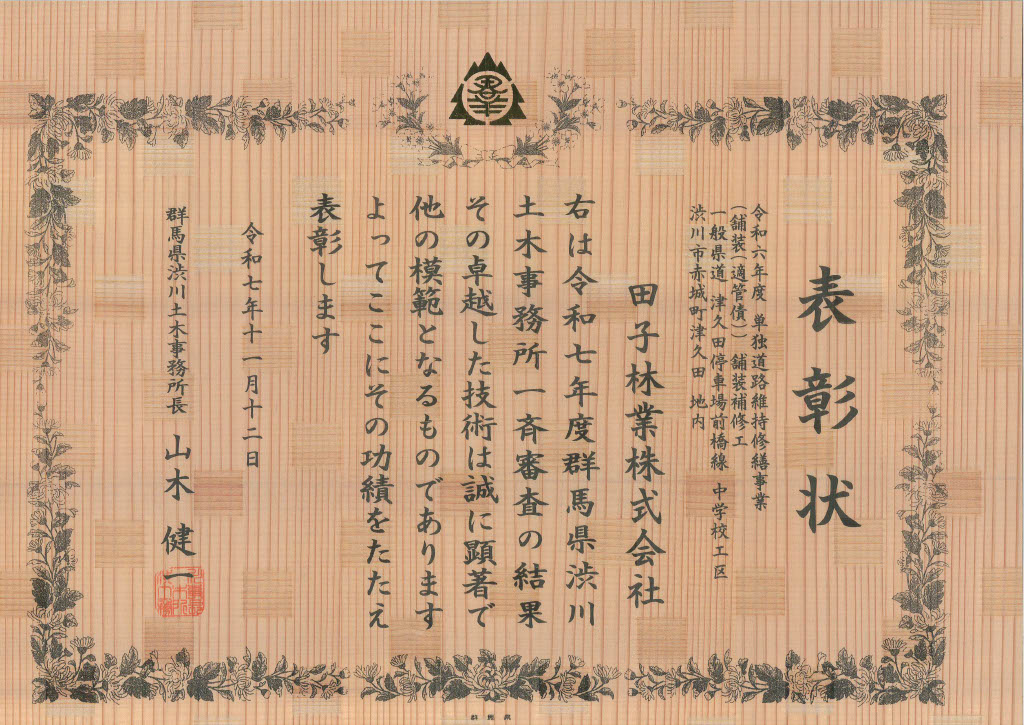 表彰状
令和六年度 単独道路維持修繕事業
(舗装(適管債)) 舗装補修工
一般県道 津久田停車場前橋線 中学校工区
渋川市赤城町津久田 地内
田子林業株式会社
右は令和七年度群馬県渋川
土木事務所一斉審査の結果
その卓越した技術は誠に顕著で
他の模範となるものであります
よってここにその功績をたたえ
表彰します
令和七年十一月十二日
群馬県渋川土木事務所長 山木健一
群馬県